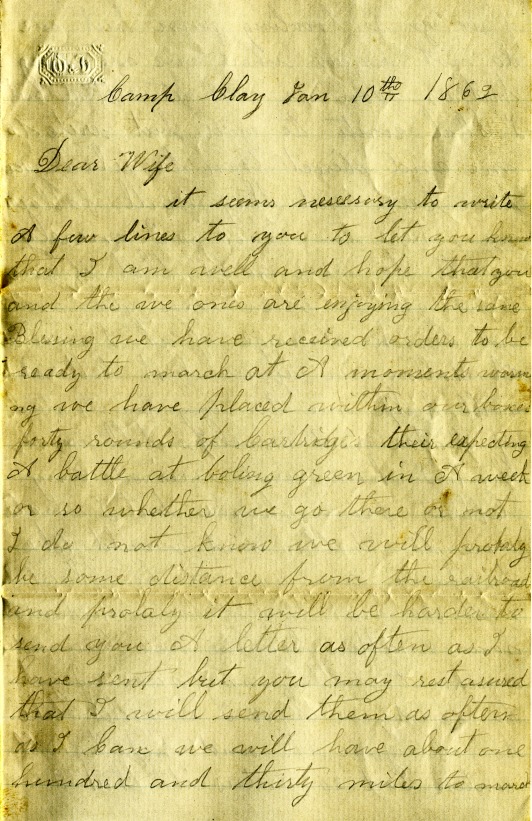 Camp Clay Jan 10th 1862
Dear Wife
it seems nesessary to write
A few lines to you to let you know
that I am well and hope that you
and the we ones are enjoying the same
Blessing we have received orders to be
ready to march at A moments warn
ng we have placed within our boxes
forty rounds of Cartridges their expecting
A battle at boling green in A week
or so whether we go there or not
I do not know we will probaly
be some distance from the railroad
and probaly it will be harder to
send you A letter as often as I
have sent but you may rest asured
that I will send them as often
as I Can we will have about one
hundred and thirty miles to march